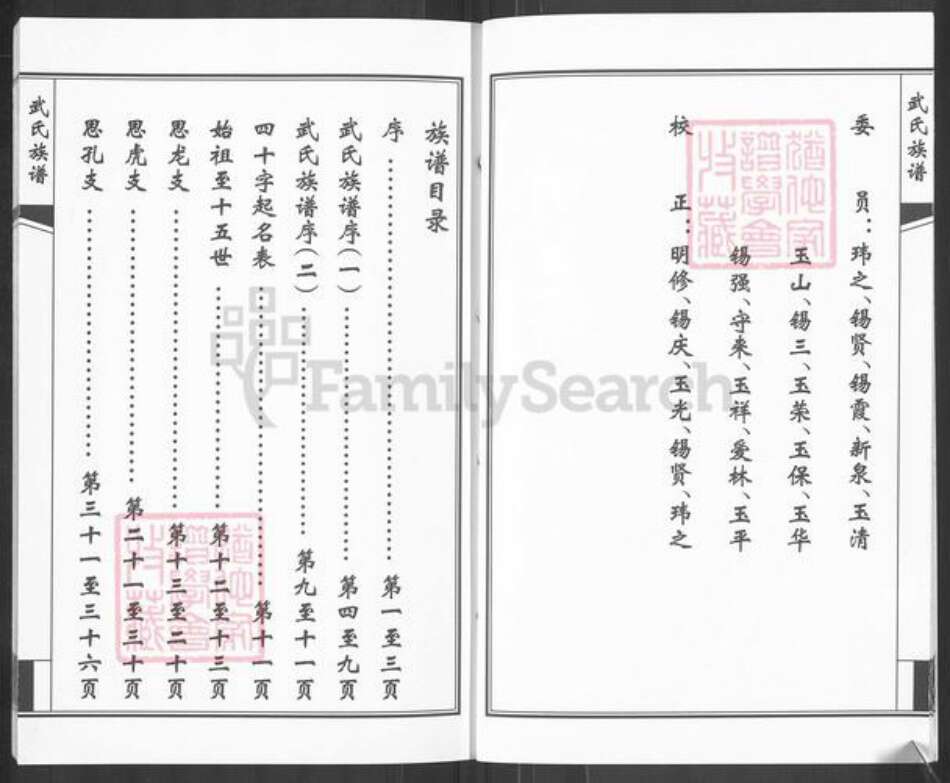 武氏族谱
委员：玮之、锡贤、锡霞、新泉、玉清
玉山、锡三、玉荣、玉保、玉华
锡强、守来、玉祥、爱林、玉平
校正：明修、锡庆、玉光、锡贤、玮之
族谱目录
序……第一至三页
武氏族谱序(一)……第四至九页
武氏族谱序(二)……第九至十一页
四十字起名表……第十一页
始祖至十五世……第十二至十三页
思龙支……第十三至二十页
思虎支……第二十一至三十页
思孔支……第三十一至三十六页
武氏族谱
FamilySearch